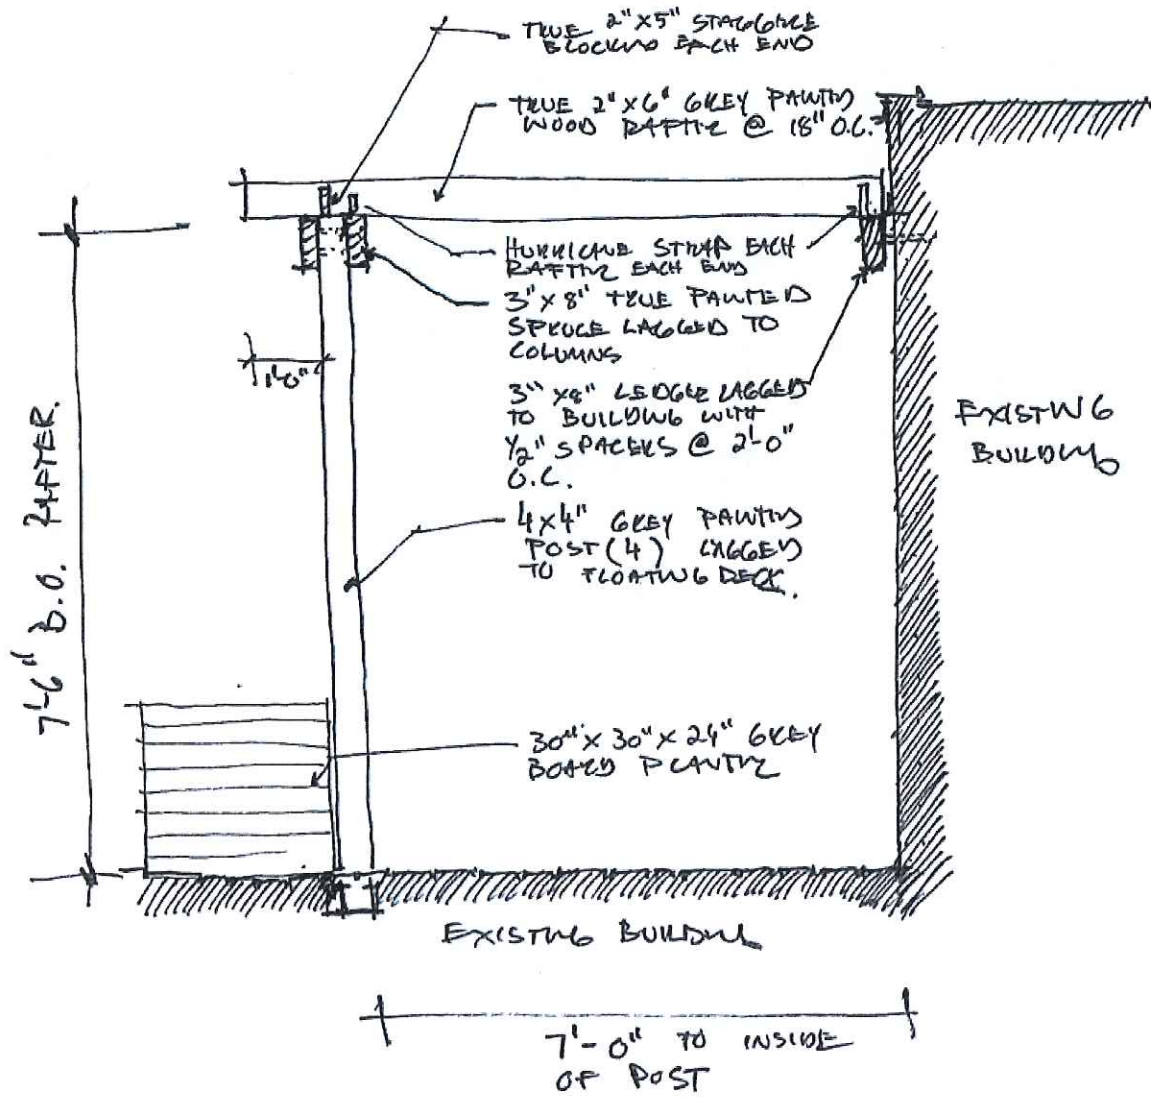 TRUE 2" X 5" STAGGERE
BLOCKING EACH END
TRUE 2" X 6" GREY PAINTED
WOOD RAFTER @ 18" O.C.
HURRICANE STRAP EACH
RAFTER EACH END
3" X 8" TRUE PAINTED
SPRUCE LAGGED TO
COLUMNS
1'-0"
3" X 8" LEDGER LAGGED
TO BUILDING WITH
1/2" SPACERS @ 2'-0"
O.C.
EXISTING
BUILDING
7'-6" B.O. RAFTER.
4 X 4" GREY PAINTED
POST (4) LAGGED
TO FLOATING DECK.
30" X 30" X 24" GREY
BOARD PLANTER
EXISTING BUILDING
7'-0" TO INSIDE
OF POST